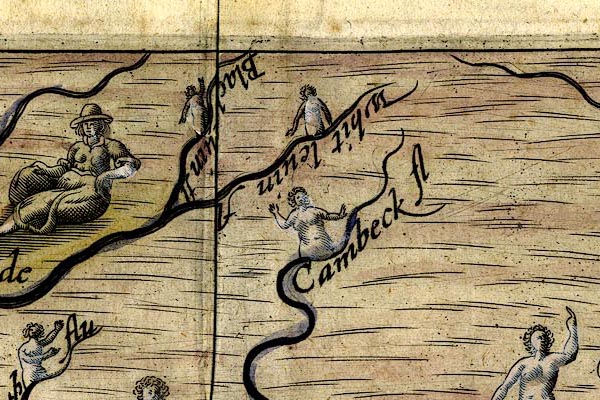 Black leuin fl
Whit leuin fl
Cambeck fl
de
flu